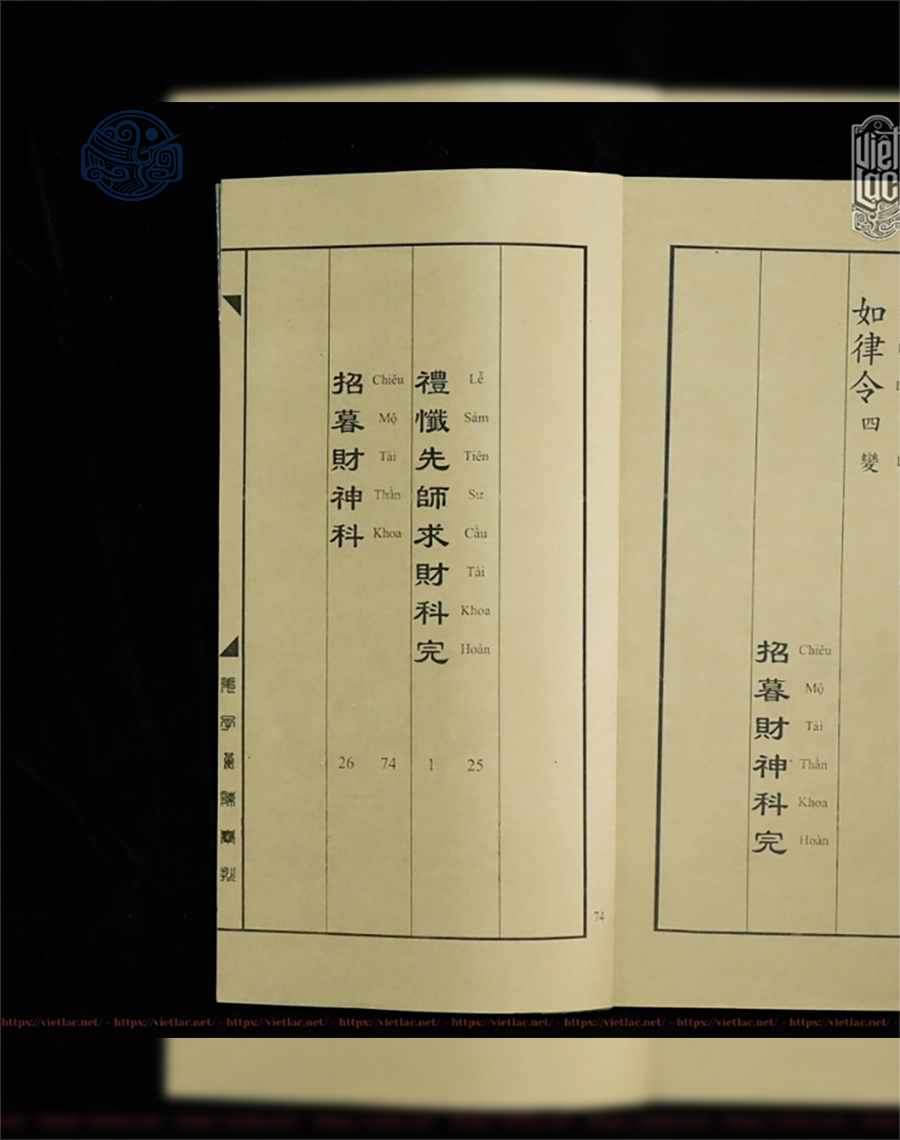 Việt
Lạc
如律令四變
招暮財神科完
Chiêu
Mộ
Tài
Thần
Khoa
Hoàn
禮懺先師求財科完
Lễ
Sám
Tiên
Sư
Cầu
Tài
Khoa
Hoàn
1 25
招暮財神科
Chiêu
Mộ
Tài
Thần
Khoa
26 74
74
https://vietlac.net/ - https://vietlac.net/ - https://vietlac.net/ - https://vietlac.net/ - https://vietlac.net/ - https://vietlac.net/ - https://vietlac.net/ - https://vietlac.net/